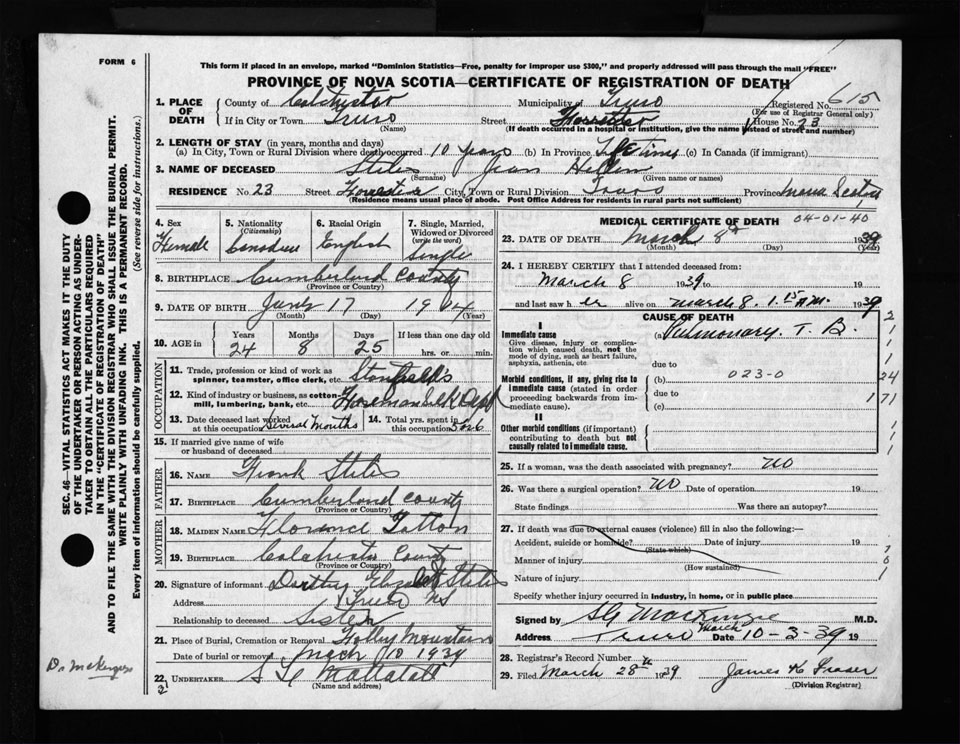 FORM 6
This form if placed in an envelope, marked "Dominion Statistics—Free, penalty for improper use $300," and properly addressed will pass through the mail "FREE"
PROVINCE OF NOVA SCOTIA—CERTIFICATE OF REGISTRATION OF DEATH
1. PLACE OF DEATH County of Colchester Municipality of Truro Registered No. 615
(For use of Registrar General only)
If in City or Town Truro Street House No. 23
(Name) (If death occurred in a hospital or institution, give the name instead of street and number)
2. LENGTH OF STAY (in years, months and days)
(a) In City, Town or Rural Division where death occurred 10 years (b) In Province Life time (c) In Canada (if immigrant)
3. NAME OF DECEASED Stiles Jean Hellen
(Surname) (Given name or names)
RESIDENCE No. 23 Street City, Town or Rural Division Truro Province Nova Scotia
(Residence means usual place of abode. Post Office Address for residents in rural parts not sufficient)
4. Sex Female
5. Nationality (Citizenship) Canadian
6. Racial Origin English
7. Single, Married, Widowed or Divorced (write the word) Single
8. BIRTHPLACE Cumberland County
(Province or Country)
9. DATE OF BIRTH 17 19
(Month) (Day) (Year)
10. AGE in Years Months Days If less than one day old
24 8 25 hrs. or min.
OCCUPATION
11. Trade, profession or kind of work as spinner, teamster, office clerk, etc. Stanfields
12. Kind of industry or business, as cotton-mill, lumbering, bank, etc. Silk Dept
13. Date deceased last worked at this occupation Several Months
14. Total yrs. spent in this occupation
15. If married give name of wife or husband of deceased
FATHER
16. NAME Frank Stiles
17. BIRTHPLACE Cumberland County
(Province or Country)
MOTHER
18. MAIDEN NAME Florance Totton
19. BIRTHPLACE Colchester County
(Province or Country)
20. Signature of informant Dorothy Elizabeth Stiles
Address Truro NS
Relationship to deceased Sister
21. Place of Burial, Cremation or Removal Folly Mountain
Date of burial or removal 10 1939
22. UNDERTAKER Mattatall
(Name and address)
MEDICAL CERTIFICATE OF DEATH
04-01-40
23. DATE OF DEATH March 8th 1939
(Month) (Day) (Year)
24. I HEREBY CERTIFY that I attended deceased from:
March 8 1939 to 19
and last saw her alive on March 8. 1.15 A.M. 1939
CAUSE OF DEATH
I
Immediate cause
Give disease, injury or complication which caused death, not the mode of dying, such as heart failure, asphyxia, asthenia, etc.
(a) Pulmonary T. B.
due to
Morbid conditions, if any, giving rise to immediate cause (stated in order proceeding backwards from immediate cause).
(b) 023-0
due to
(c)
24
171
II
Other morbid conditions (if important) contributing to death but not causally related to immediate cause.
25. If a woman, was the death associated with pregnancy? no
26. Was there a surgical operation? no Date of operation 19
State findings Was there an autopsy?
27. If death was due to external causes (violence) fill in also the following:—
Accident, suicide or homicide? Date of injury 19
(State which)
Manner of injury
(How sustained)
Nature of injury
Specify whether injury occurred in industry, in home, or in public place
Signed by MacKenzie M.D.
March
Address Truro Date 10-3-39 19
28. Registrar's Record Number
29. Filed March 28th 1939 James K Fraser
(Division Registrar)
SEC. 46—VITAL STATISTICS ACT MAKES IT THE DUTY
OF THE UNDERTAKER OR PERSON ACTING AS UNDERTAKER TO OBTAIN ALL THE PARTICULARS REQUIRED
IN THE "CERTIFICATE OF REGISTRATION OF DEATH"
AND TO FILE THE SAME WITH THE DIVISION REGISTRAR WHO SHALL ISSUE THE BURIAL PERMIT.
WRITE PLAINLY WITH UNFADING INK. THIS IS A PERMANENT RECORD.
Every item of information should be carefully supplied. (See reverse side for instructions.)